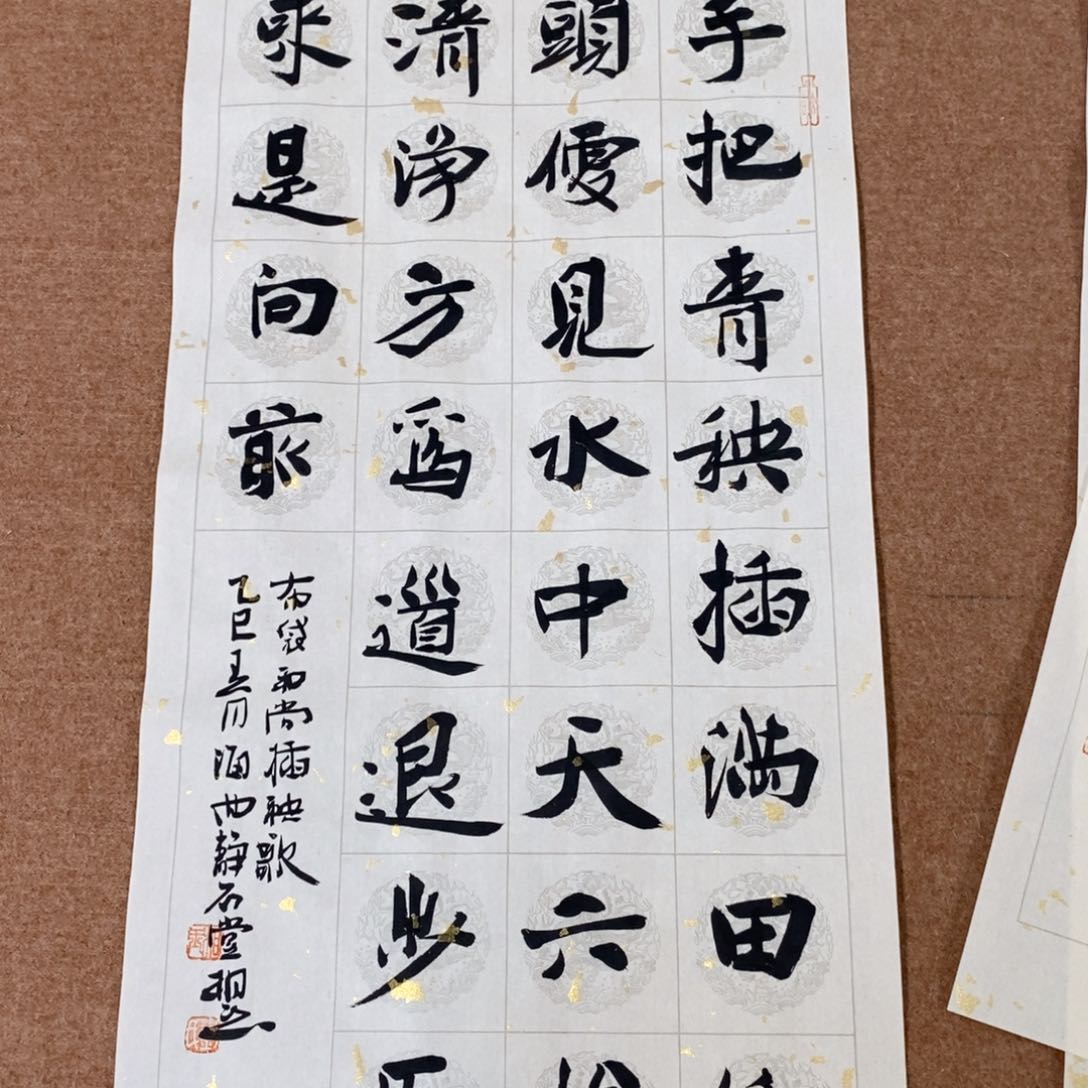 手把青秧插满田
頭便見水中天六
清淨方為道退步
來是向前
布袋和尚插秧歌
乙巳五月海曲靜石堂